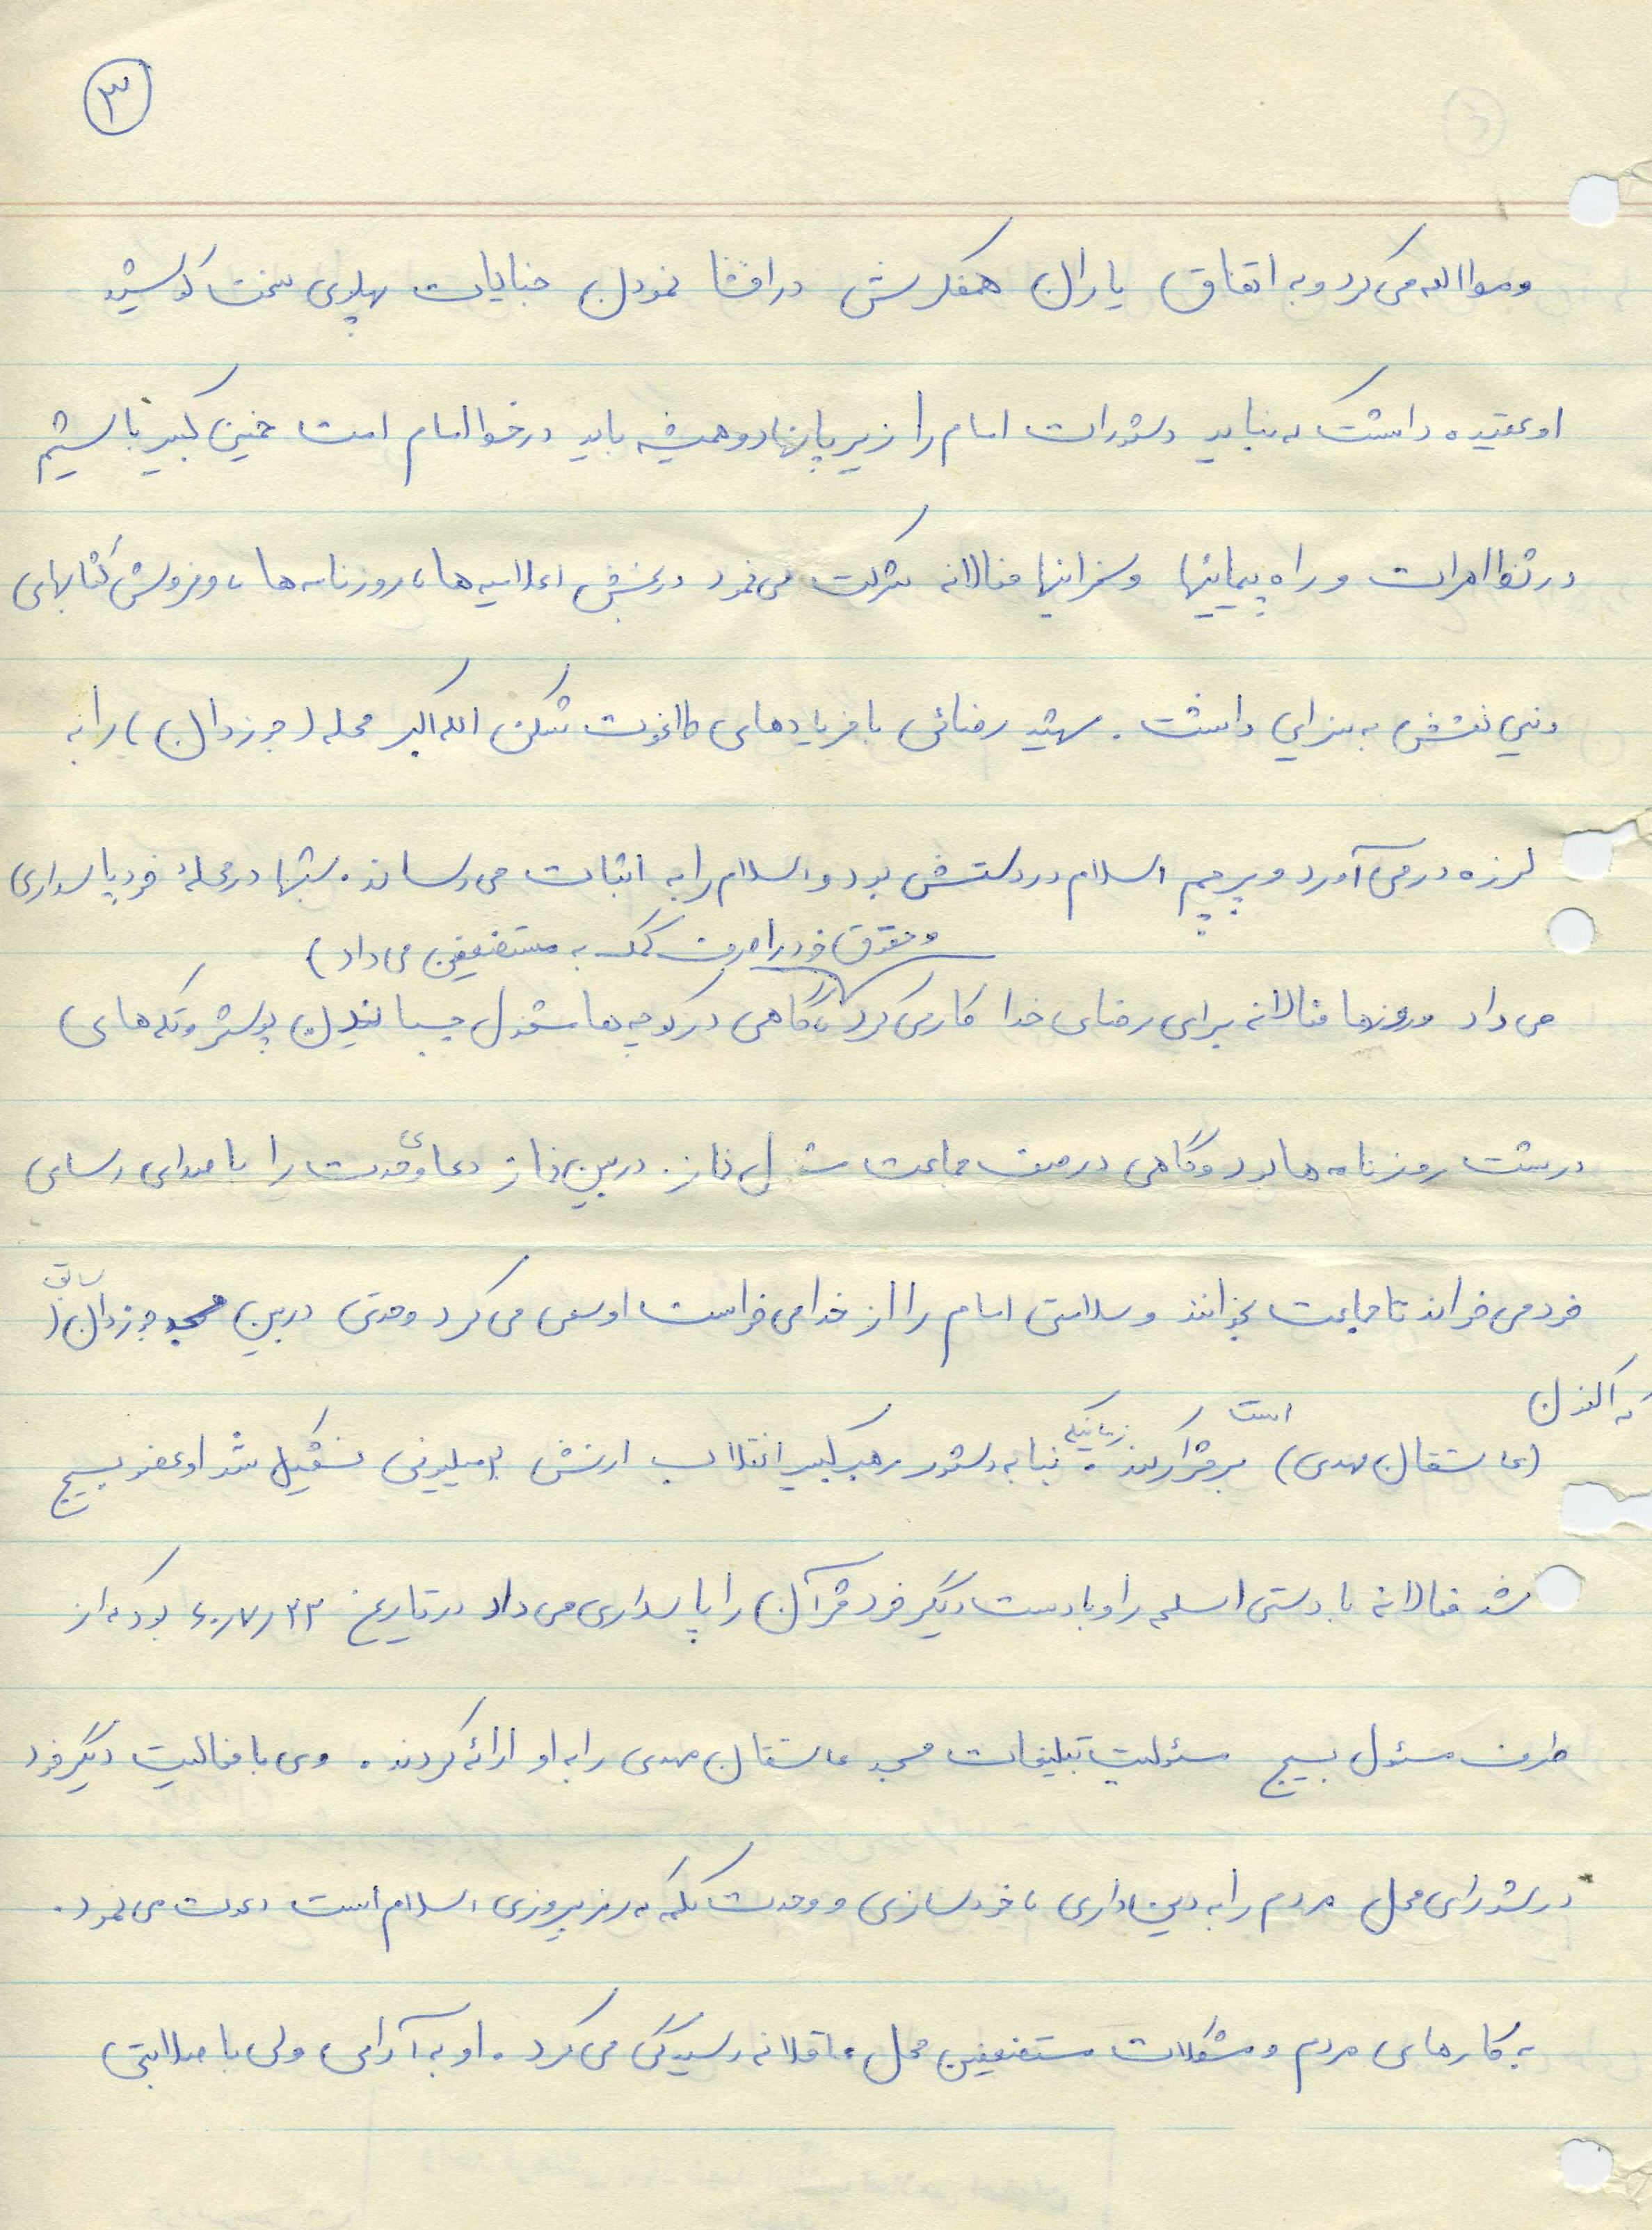 ۳
و مطالعه می‌کرد و به اتفاق یاران همفکرش در افشا نمودن جنایات پهلوی سخت کوشید
او عقیده داشت که نباید دستورات امام را زیر پا نهاد و همیشه باید در خط امام امت خمینی کبیر باشیم
در تظاهرات و راه پیمایئیها و سخرانیها فعالانه شرکت می‌نمود در پخش اعلامیه‌ها، روزنامه‌ها، و فروش کتابهای
دینی نقش به سزایی داشت. شهید رضائی با فریادهای طاغوت شکن الله اکبر محله (جوزدان) را به
لرزه در می‌آورد و پرچم اسلام در دستش بود و اسلام را به اثبات می‌رساند. شبها در محلهٔ خود پاسداری
و حقوق خود را صرف کمک به مستضعفین می‌داد)
می‌داد و روزها فعالانه برای رضای خدا کار می‌کرد، گاهی در کوچه‌ها مشغول چسبانیدن پوستر و تکه‌های
درشت روزنامه‌ها بود و گاهی در صف جماعت مشغول نماز. در بین نماز دعای وحدت را با صدای رسای
خود می‌خواند تا جماعت بخوانند و سلامتی امام را از خدا می‌خواست او سعی می‌کرد وحدتی در بین مسجد جوزدان (سابق
که اکنون
(عاشقان مهدی) است برقرار کند. زمانیکه بنا به دستور رهبر کبیر انقلاب ارتش ۲۰ میلیونی تشکیل شد او عضو بسیج
شد فعالانه با دستی اسلحه را و با دست دیگر خود قرآن را پاسداری می‌داد در تاریخ ۶۰٫۷٫۲۳ بود که از
طرف مسئول بسیج مسئولیت تبلیغات مسجد عاشقان مهدی را به او ارائه کردند. وی با فعالیت دیگر خود
در شورای محل مردم را به دین‌داری، خودسازی و وحدت کلمه که رمز پیروزی اسلام است دعوت می‌نمود.
به کارهای مردم و مشکلات مستضعفین محل عاقلانه رسیدگی می‌کرد. او به آرامی ولی با صلابتی